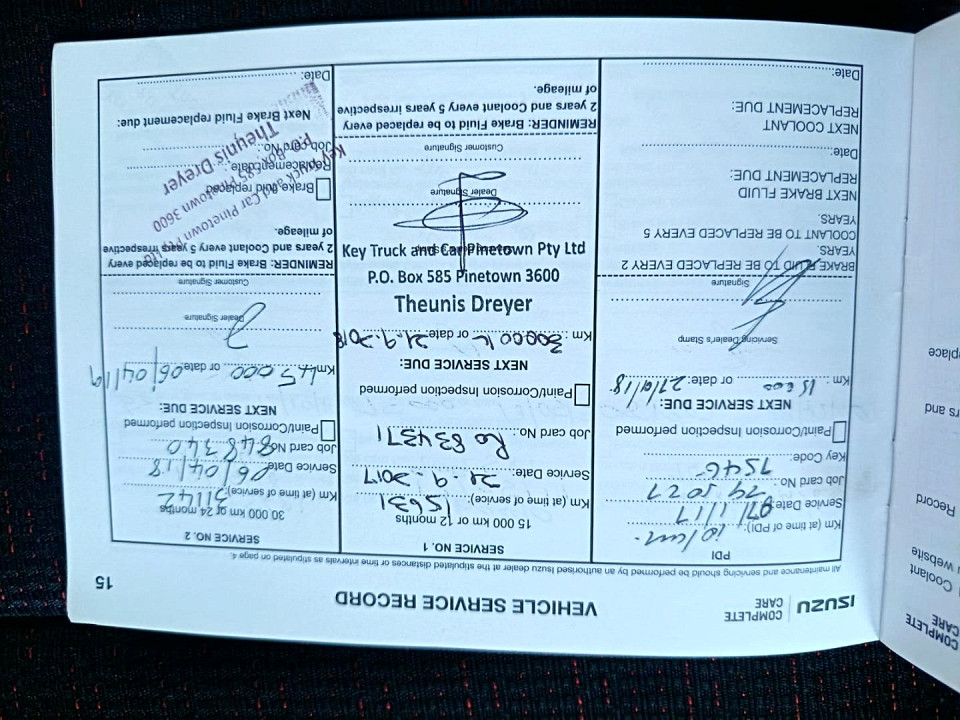 ISUZU
COMPLETE
CARE
VEHICLE SERVICE RECORD
15
All maintenance and servicing should be performed by an authorised Isuzu dealer at the stipulated distances or time intervals as stipulated on page 4.
PDI
Km (at time of PDI): 10/km.
Service Date:
Job card No.:
Key Code: 7546
Paint/Corrosion Inspection performed
NEXT SERVICE DUE:
Km: 15 000 or date:
Servicing Dealer's Stamp
Signature
BRAKE FLUID TO BE REPLACED EVERY 2
YEARS.
COOLANT TO BE REPLACED EVERY 5
YEARS.
NEXT BRAKE FLUID
REPLACEMENT DUE:
Date:
NEXT COOLANT
REPLACEMENT DUE:
Date:
SERVICE NO. 1
15 000 km or 12 months
Km (at time of service): 15631
Service Date: 21.9.2017
Job card No.: Ro 834371
Paint/Corrosion Inspection performed
NEXT SERVICE DUE:
Km: 30000 k or date: 21.9.2018
Theunis Dreyer
P.O. Box 585 Pinetown 3600
Key Truck and Car Pinetown Pty Ltd
Dealer Signature
Customer Signature
REMINDER: Brake Fluid to be replaced every
2 years and Coolant every 5 years irrespective
of mileage.
SERVICE NO. 2
30 000 km or 24 months
Km (at time of service): 31142
Service Date: 06/04/18
Job card No.: 848340
Paint/Corrosion Inspection performed
NEXT SERVICE DUE
Km: 45 000 or date: 06/04/19
Dealer Signature
Customer Signature
REMINDER: Brake Fluid to be replaced every
2 years and Coolant every 5 years irrespective
of mileage.
Key Truck and Car Pinetown Pty Ltd
P.O. Box 585 Pinetown 3600
Theunis Dreyer
Brake fluid replaced
Replacement date:
Job card No.:
Next Brake Fluid replacement due:
Date:
COMPLETE
CARE
Coolant
website
Record
rs and
place